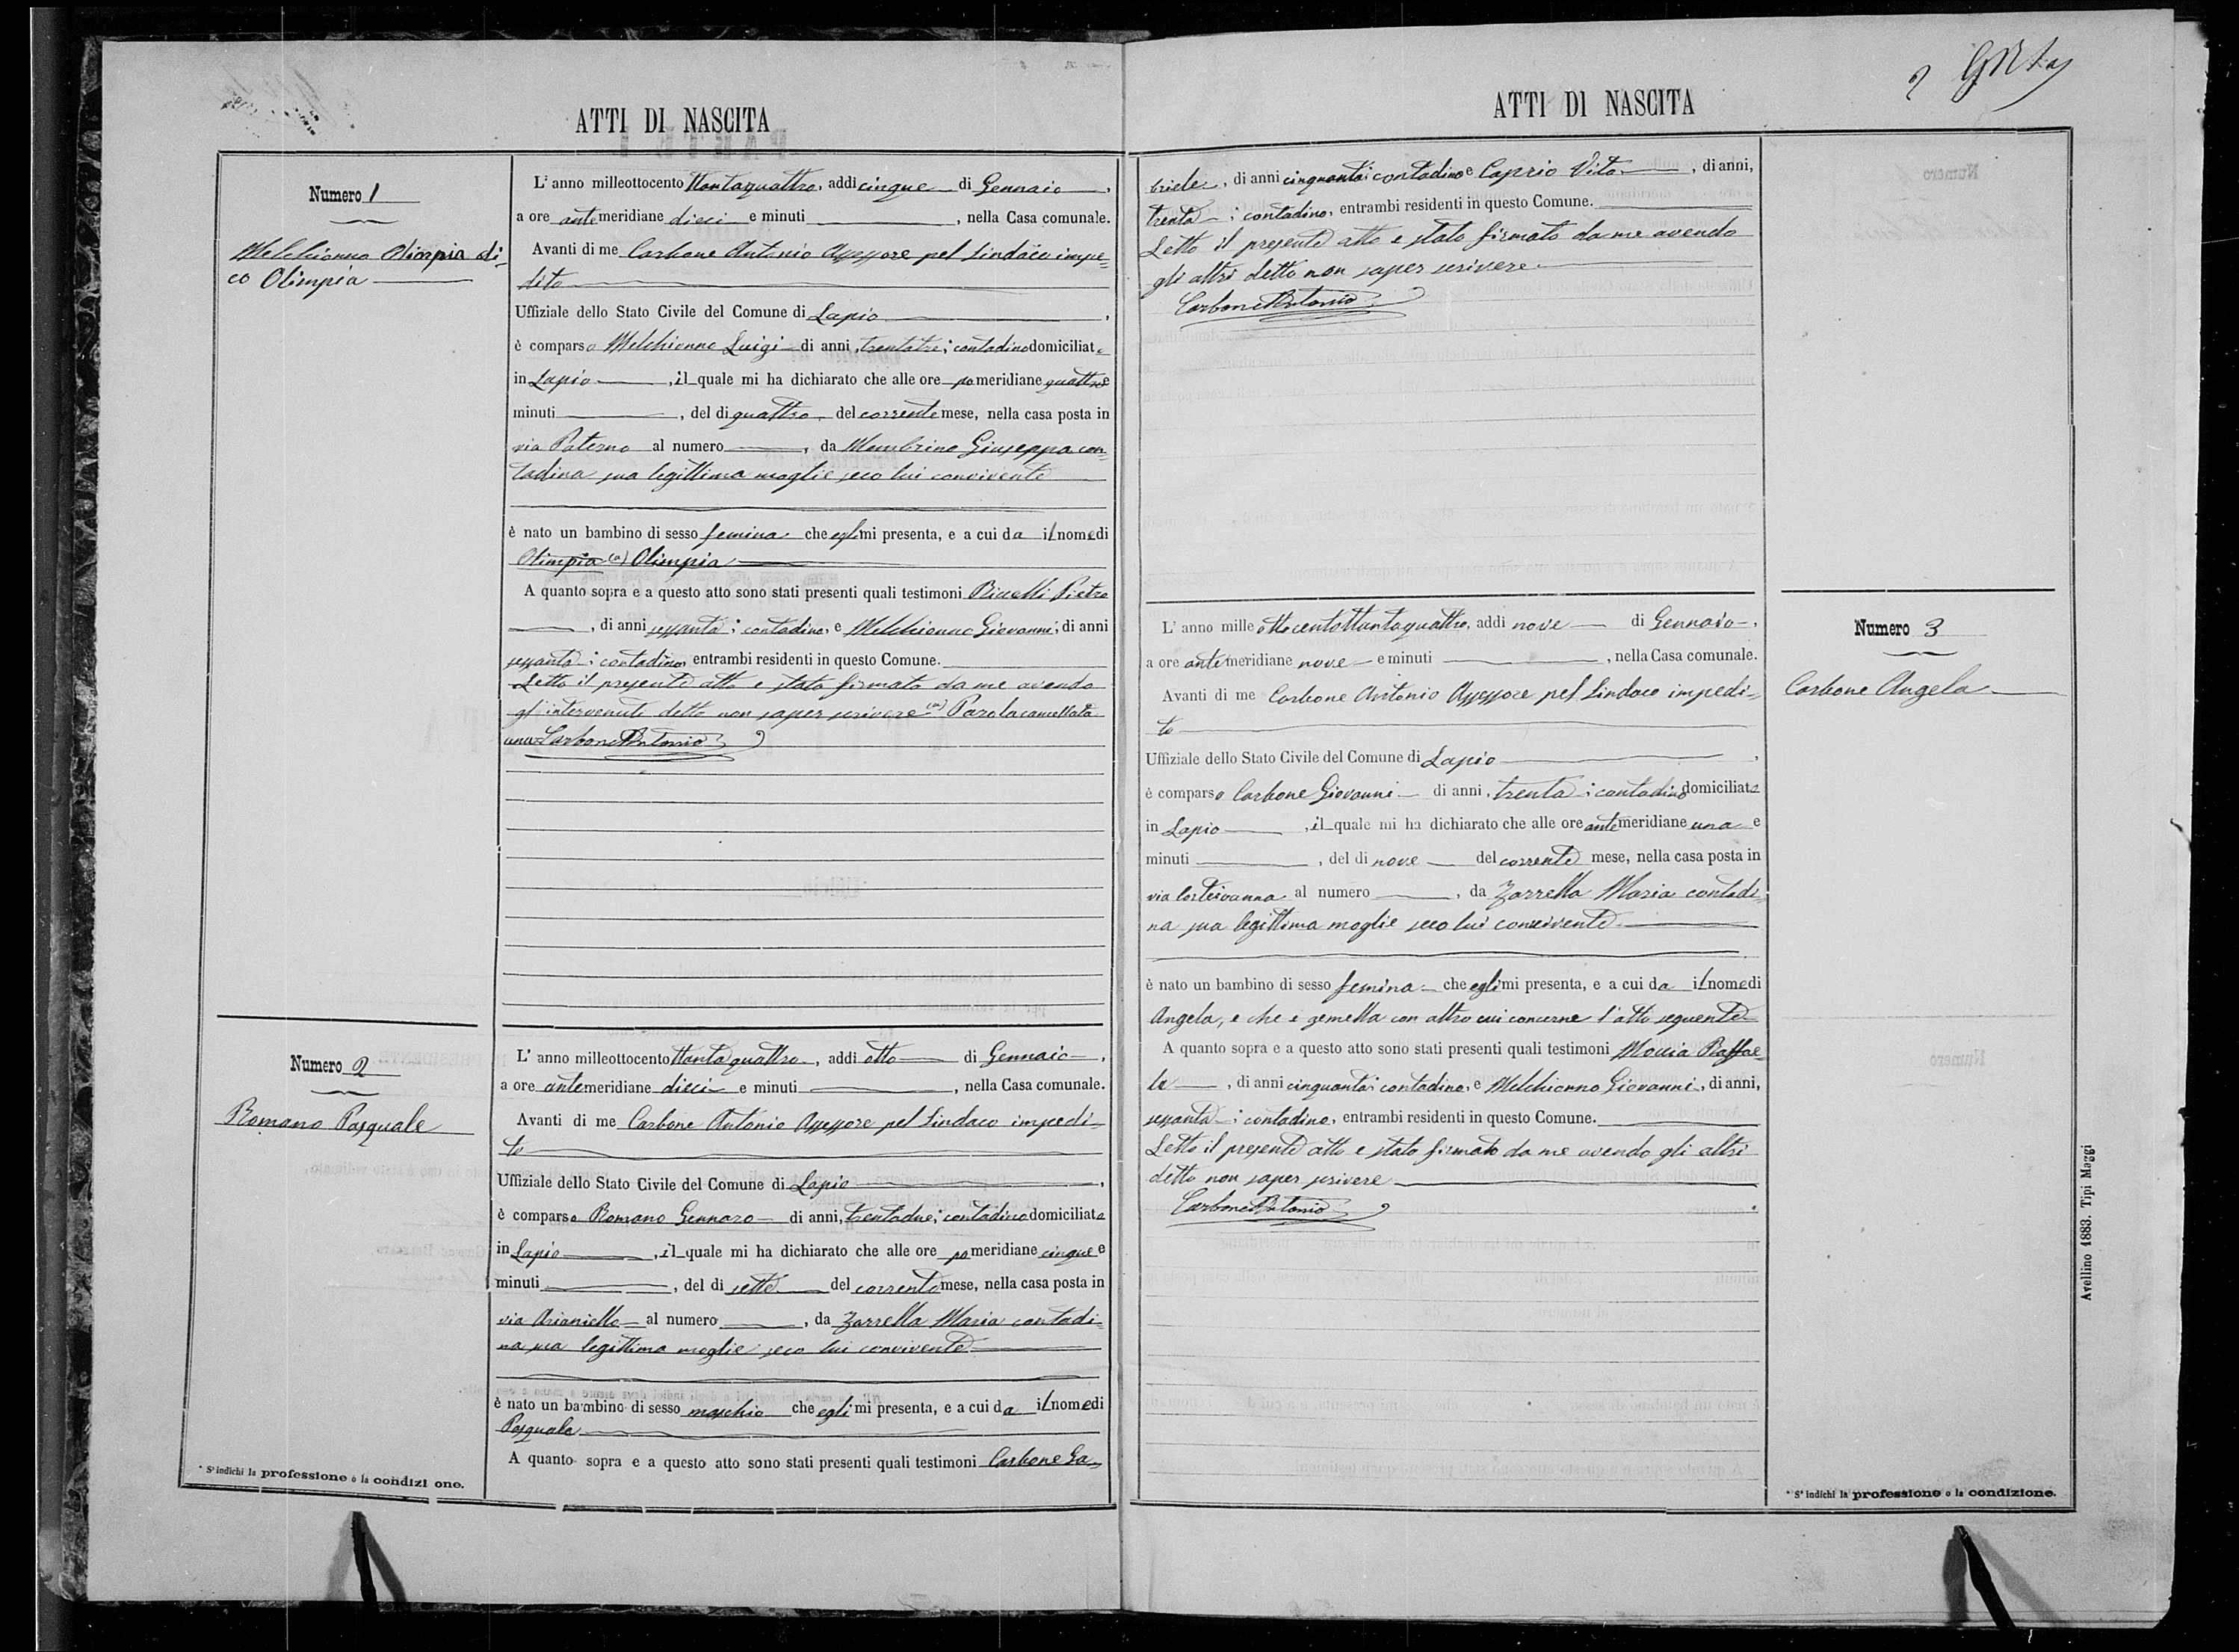 ATTI DI NASCITA
Numero 1
Melchionna Olimpia di-
co Olimpia
L' anno milleottocento ttantaquattro, addi cinque di Gennaio,
a ore antemeridiane dieci e minuti , nella Casa comunale.
Avanti di me Carbone Antonio Assessore pel Sindaco impe-
dito
Uffiziale dello Stato Civile del Comune di Lapio,
è comparso Melchionno Luigi di anni, trentatre; contadino domiciliato
in Lapio , il quale mi ha dichiarato che alle ore pomeridiane quattro e
minuti , del di quattro del corrente mese, nella casa posta in
via Paterno al numero , da Membrino Giuseppa con-
tadina sua legittima moglie seco lui convivente
è nato un bambino di sesso femina che egli mi presenta, e a cui da il nome di
Olimpia (a) Olimpia
A quanto sopra e a questo atto sono stati presenti quali testimoni Pietro
, di anni sessanta; contadino, e Melchionno Giovanni, di anni
sessanta; contadino, entrambi residenti in questo Comune.
Letto il presente atto e stato firmato da me avendo
gl'intervenuti detto non saper scrivere (a) Parola cancellata
una Carbone Antonio
Numero 2
Romano Pasquale
L' anno milleottocento ttantaquattro, addi otto di Gennaio,
a ore antemeridiane dieci e minuti , nella Casa comunale.
Avanti di me Carbone Antonio Assessore pel Sindaco impedi-
to
Uffiziale dello Stato Civile del Comune di Lapio,
è comparso Romano Gennaro di anni, trentadue; contadino domiciliato
in Lapio , il quale mi ha dichiarato che alle ore pomeridiane cinque e
minuti , del di sette del corrente mese, nella casa posta in
via Arianiello al numero , da Zarrella Maria contadi-
na sua legittima moglie seco lui convivente
è nato un bambino di sesso maschio che egli mi presenta, e a cui da il nome di
Pasquale
A quanto sopra e a questo atto sono stati presenti quali testimoni Carbone Ga-
* S' indichi la professione o la condizione.
ATTI DI NASCITA
2
briele, di anni cinquanta; contadino e Caprio Vito , di anni,
trenta; contadino, entrambi residenti in questo Comune.
Letto il presente atto e stato firmato da me avendo
gli altri detto non saper scrivere
Carbone Antonio
L' anno mille ottocentottantaquattro, addi nove di Gennaio,
a ore antemeridiane nove e minuti , nella Casa comunale.
Avanti di me Carbone Antonio Assessore pel Sindaco impedi-
to
Uffiziale dello Stato Civile del Comune di Lapio,
è comparso Carbone Giovanni di anni, trenta; contadino domiciliato
in Lapio , il quale mi ha dichiarato che alle ore antemeridiane una e
minuti , del di nove del corrente mese, nella casa posta in
via al numero , da Zarrella Maria contadi-
na sua legittima moglie seco lui convivente
è nato un bambino di sesso femina che egli mi presenta, e a cui da il nome di
Angela, e che è gemella con altro cui concerne l'atto seguente
A quanto sopra e a questo atto sono stati presenti quali testimoni Moccia Raffae-
le , di anni cinquanta; contadino, e Melchionno Giovanni, di anni,
sessanta; contadino, entrambi residenti in questo Comune.
Letto il presente atto e stato firmato da me avendo gli altri
detto non saper scrivere
Carbone Antonio
Numero 3
Carbone Angela
* S' indichi la professione o la condizione.
Avellino 1883. Tipi Maggi